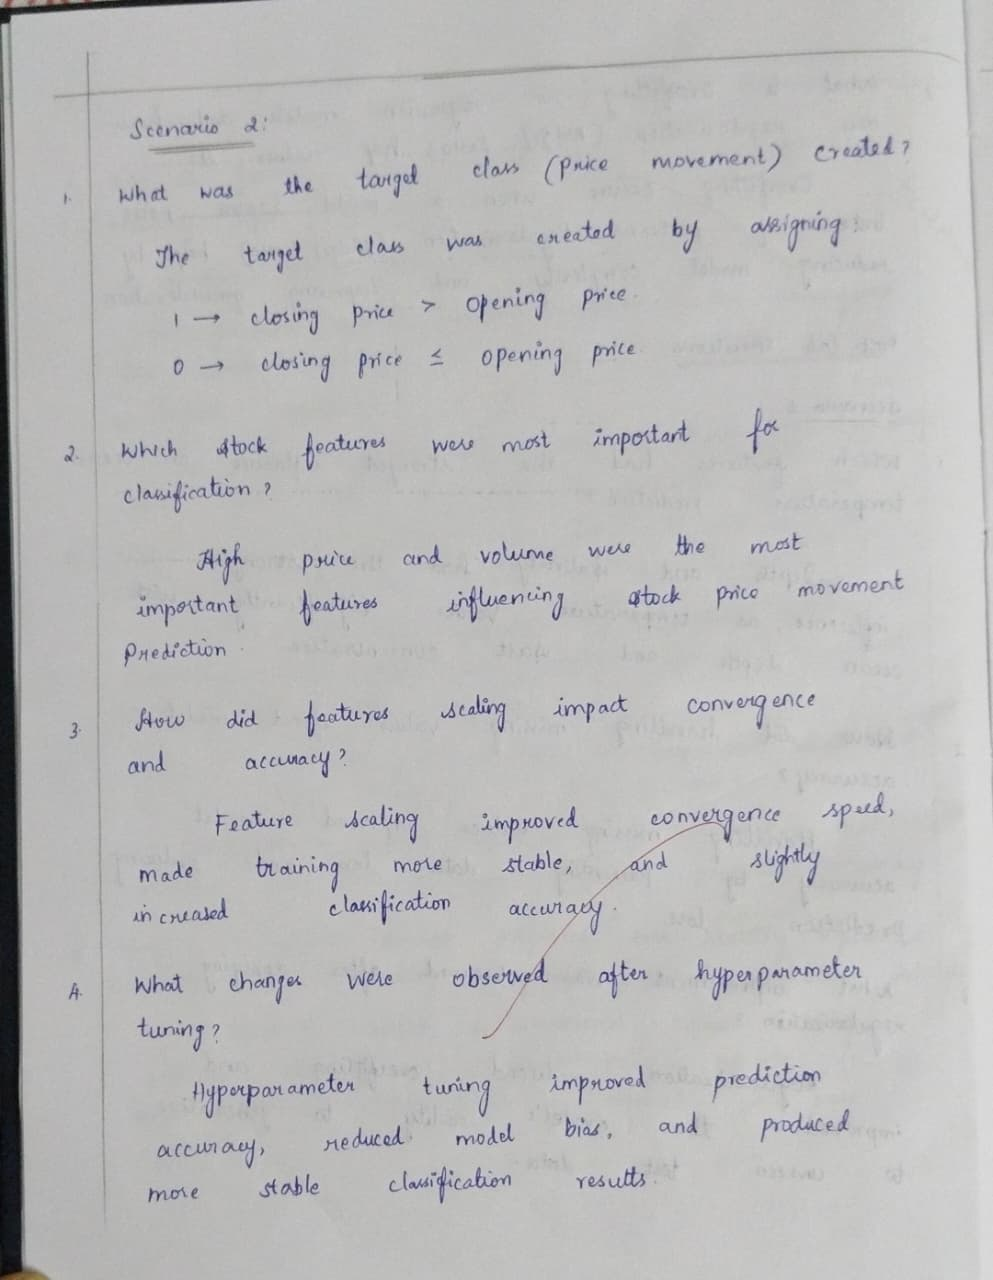 Scenario 2:
1. What was the target class (price movement) created?
The target class was created by assigning
1 → closing price > opening price.
0 → closing price ≤ opening price
2. Which stock features were most important for
classification?
High price and volume were the most
important features influencing stock price movement
Prediction.
3. How did features scaling impact convergence
and accuracy?
Feature scaling improved convergence speed,
made training more stable, and slightly
increased classification accuracy.
4. What changes were observed after hyperparameter
tuning?
Hyperparameter tuning improved prediction
accuracy, reduced model bias, and produced
more stable classification results.